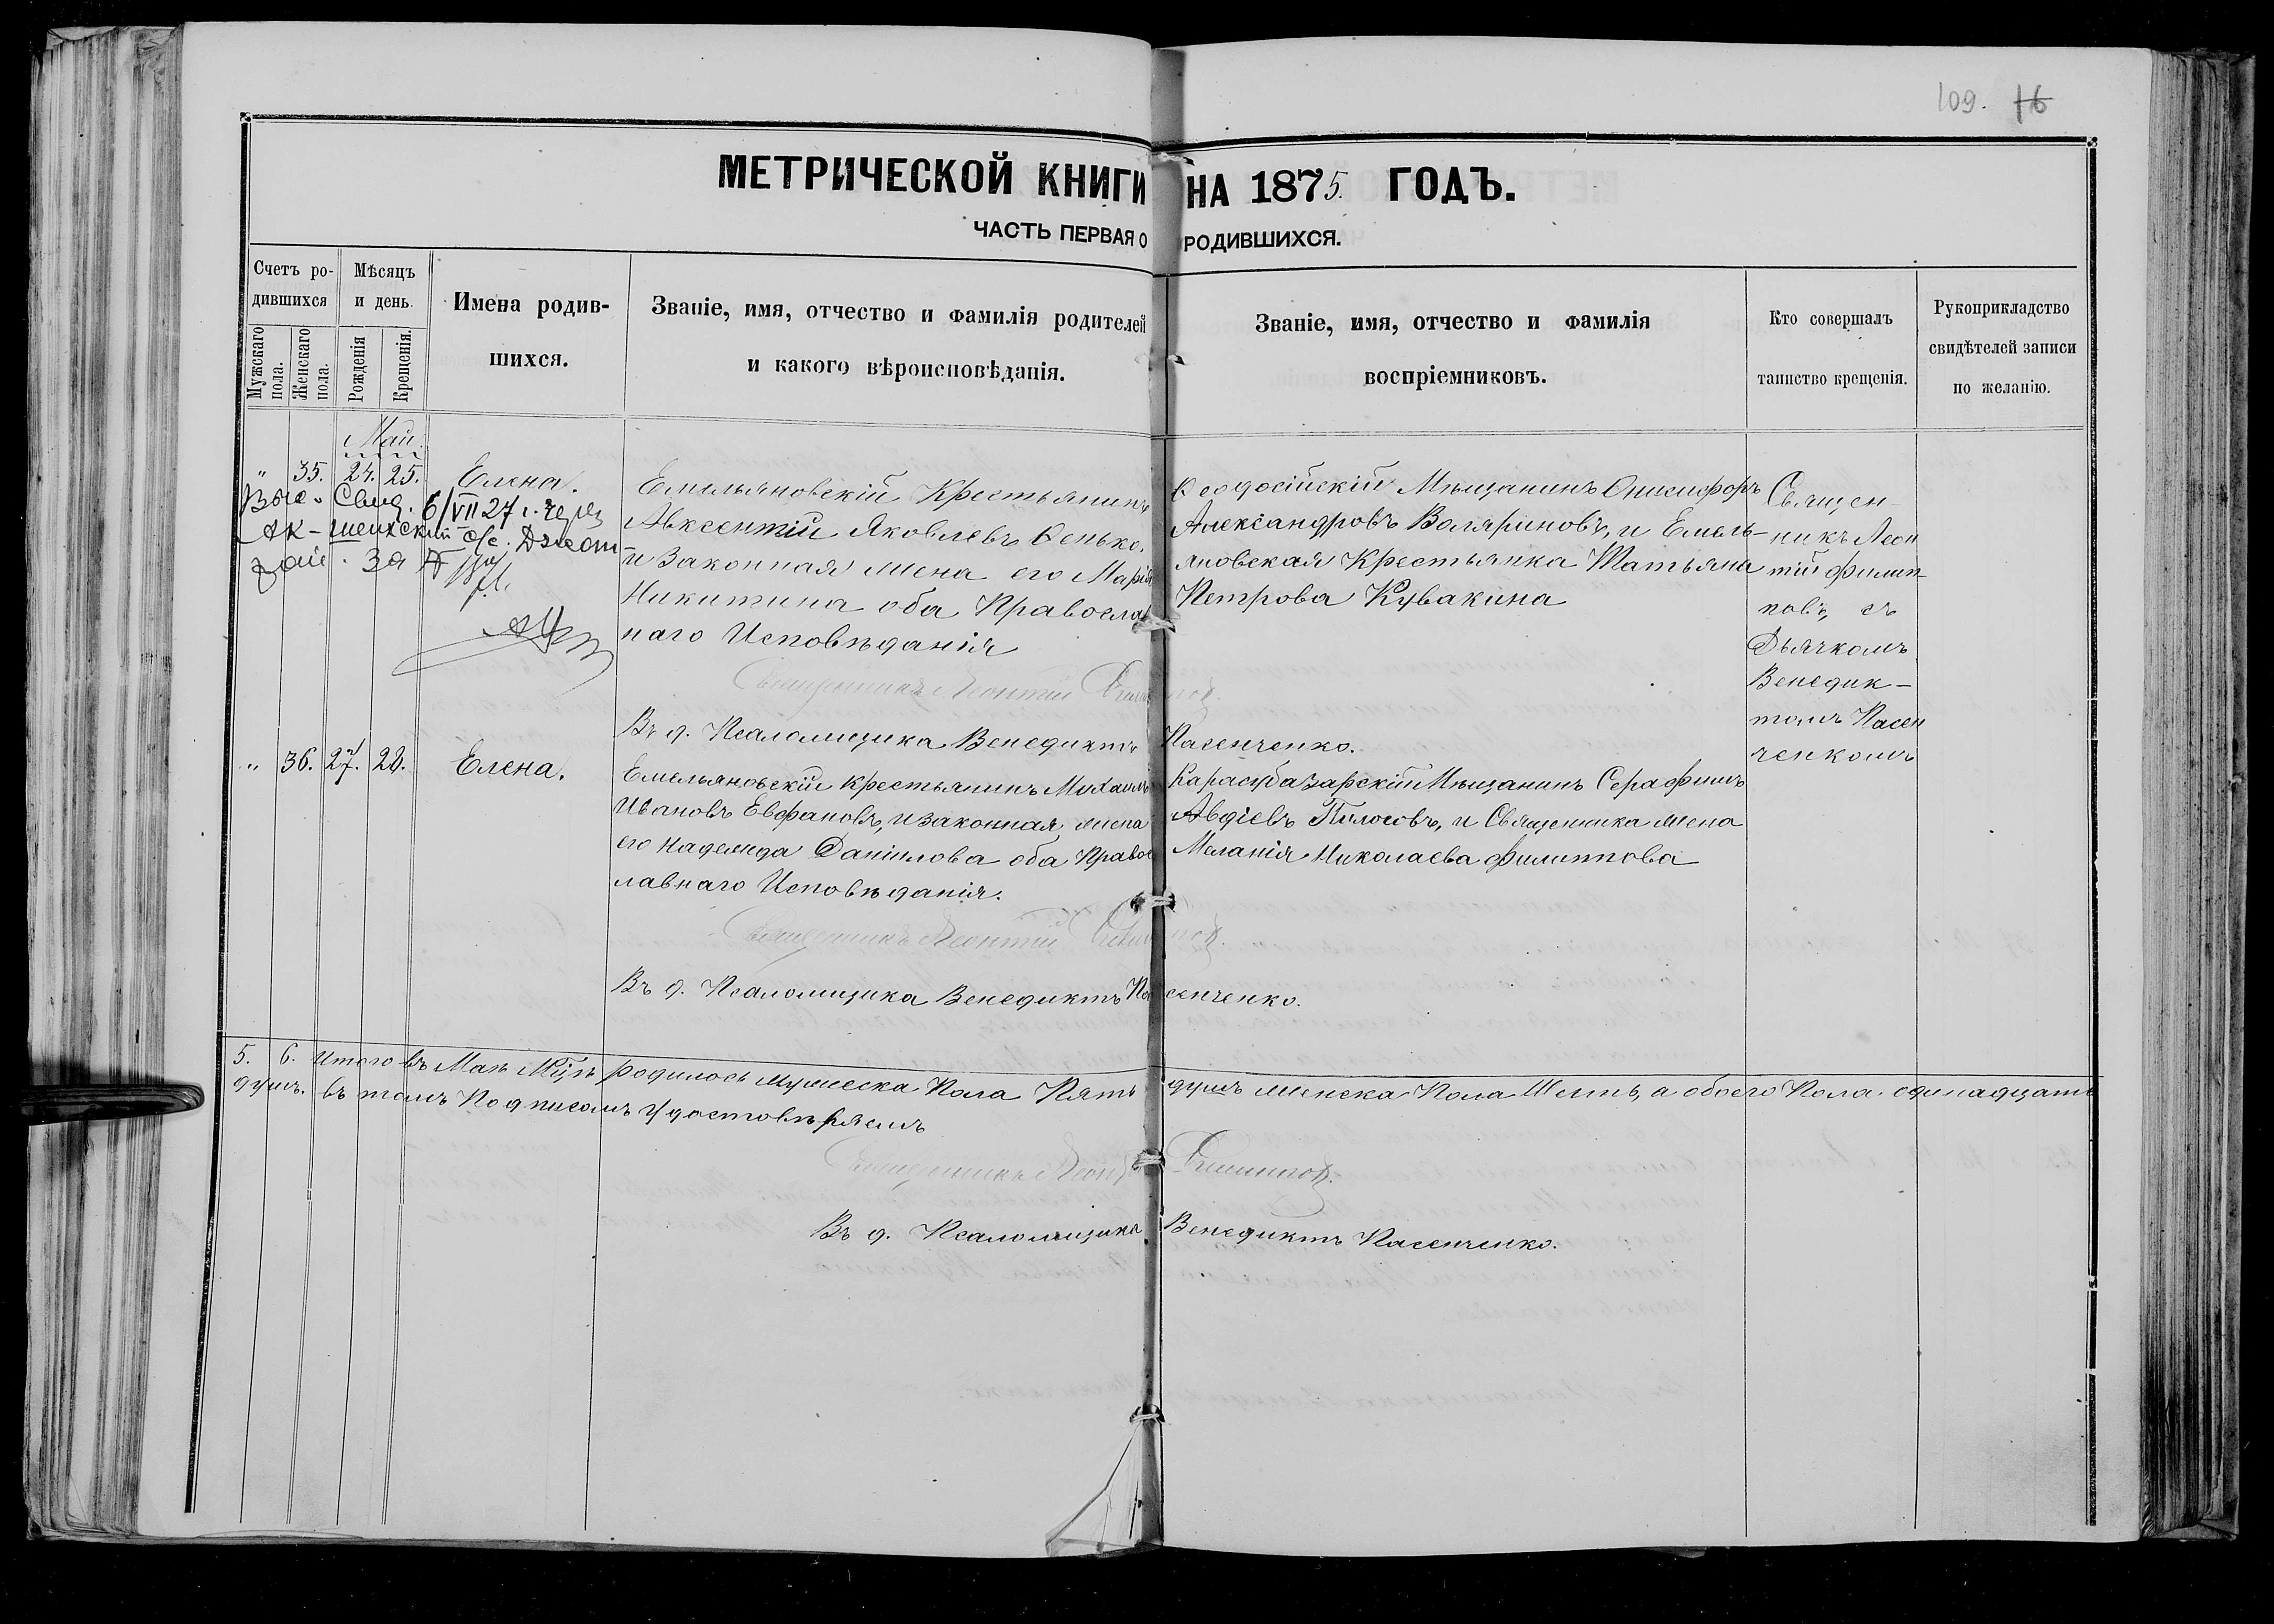 109. 76
МЕТРИЧЕСКОЙ КНИГИ НА 1875. ГОДЪ.
ЧАСТЬ ПЕРВАЯ О РОДИВШИХСЯ.
Счетъ ро-
дившихся
Мужскаго пола.
Женскаго пола.
Мѣсяцъ
и день.
Рожденія
Крещенія.
Имена родив-
шихся.
Званіе, имя, отчество и фамилія родителей
и какого вѣроисповѣданія.
Званіе, имя, отчество и фамилія
воспріемниковъ.
Кто совершалъ
таинство крещенія.
Рукоприкладство
свидѣтелей записи
по желанію.
Маи.
" 35. 24. 25. Елена.
Выс. Свид. 6/VII 27 г. через
Ак-шеихский с/с. Джан
за №
Емельяновскій Крестьянинъ
Авксентій Яковлевъ Ѳенько,
и Законная жена его Марія
Никитина оба Православ
наго Исповѣданія
Священникъ Леонтій Филиппов.
Въ д. Псаломщика Венедиктъ Пасенченко.
Ѳеодосійскій Мѣщанинъ Онисифоръ
Александровъ Валяриновъ, и Емель-
яновская Крестьянка Татьяна
Петрова Кувакина
Священ-
никъ Леон
тій Филип-
повъ, съ
Дьячкомъ
Венедик-
томъ Пасен
ченкомъ
" 36. 27. 28. Елена.
Емельяновскій крестьянинъ Михаилъ
Ивановъ Евфановъ, и законная жена
его Надежда Даніилова оба Правос
лавнаго Исповѣданія.
Священникъ Леонтій Филиппов.
Въ д. Псаломщика Венедиктъ Пасенченко.
Карасубазарскій Мѣщанинъ Серафимъ
Авдіевъ Полосовъ, и Священника жена
Меланія Николаева Филиппова
5. 6. Итого въ Маѣ Мцѣ родилось мужеска Пола Пять душъ женска Пола Шесть, а обоего Пола одинадцать
душъ. въ томъ Подписомъ Удостовѣряемъ
Священникъ Леонт Филиппов.
Въ д. Псаломщика Венедиктъ Пасенченко.